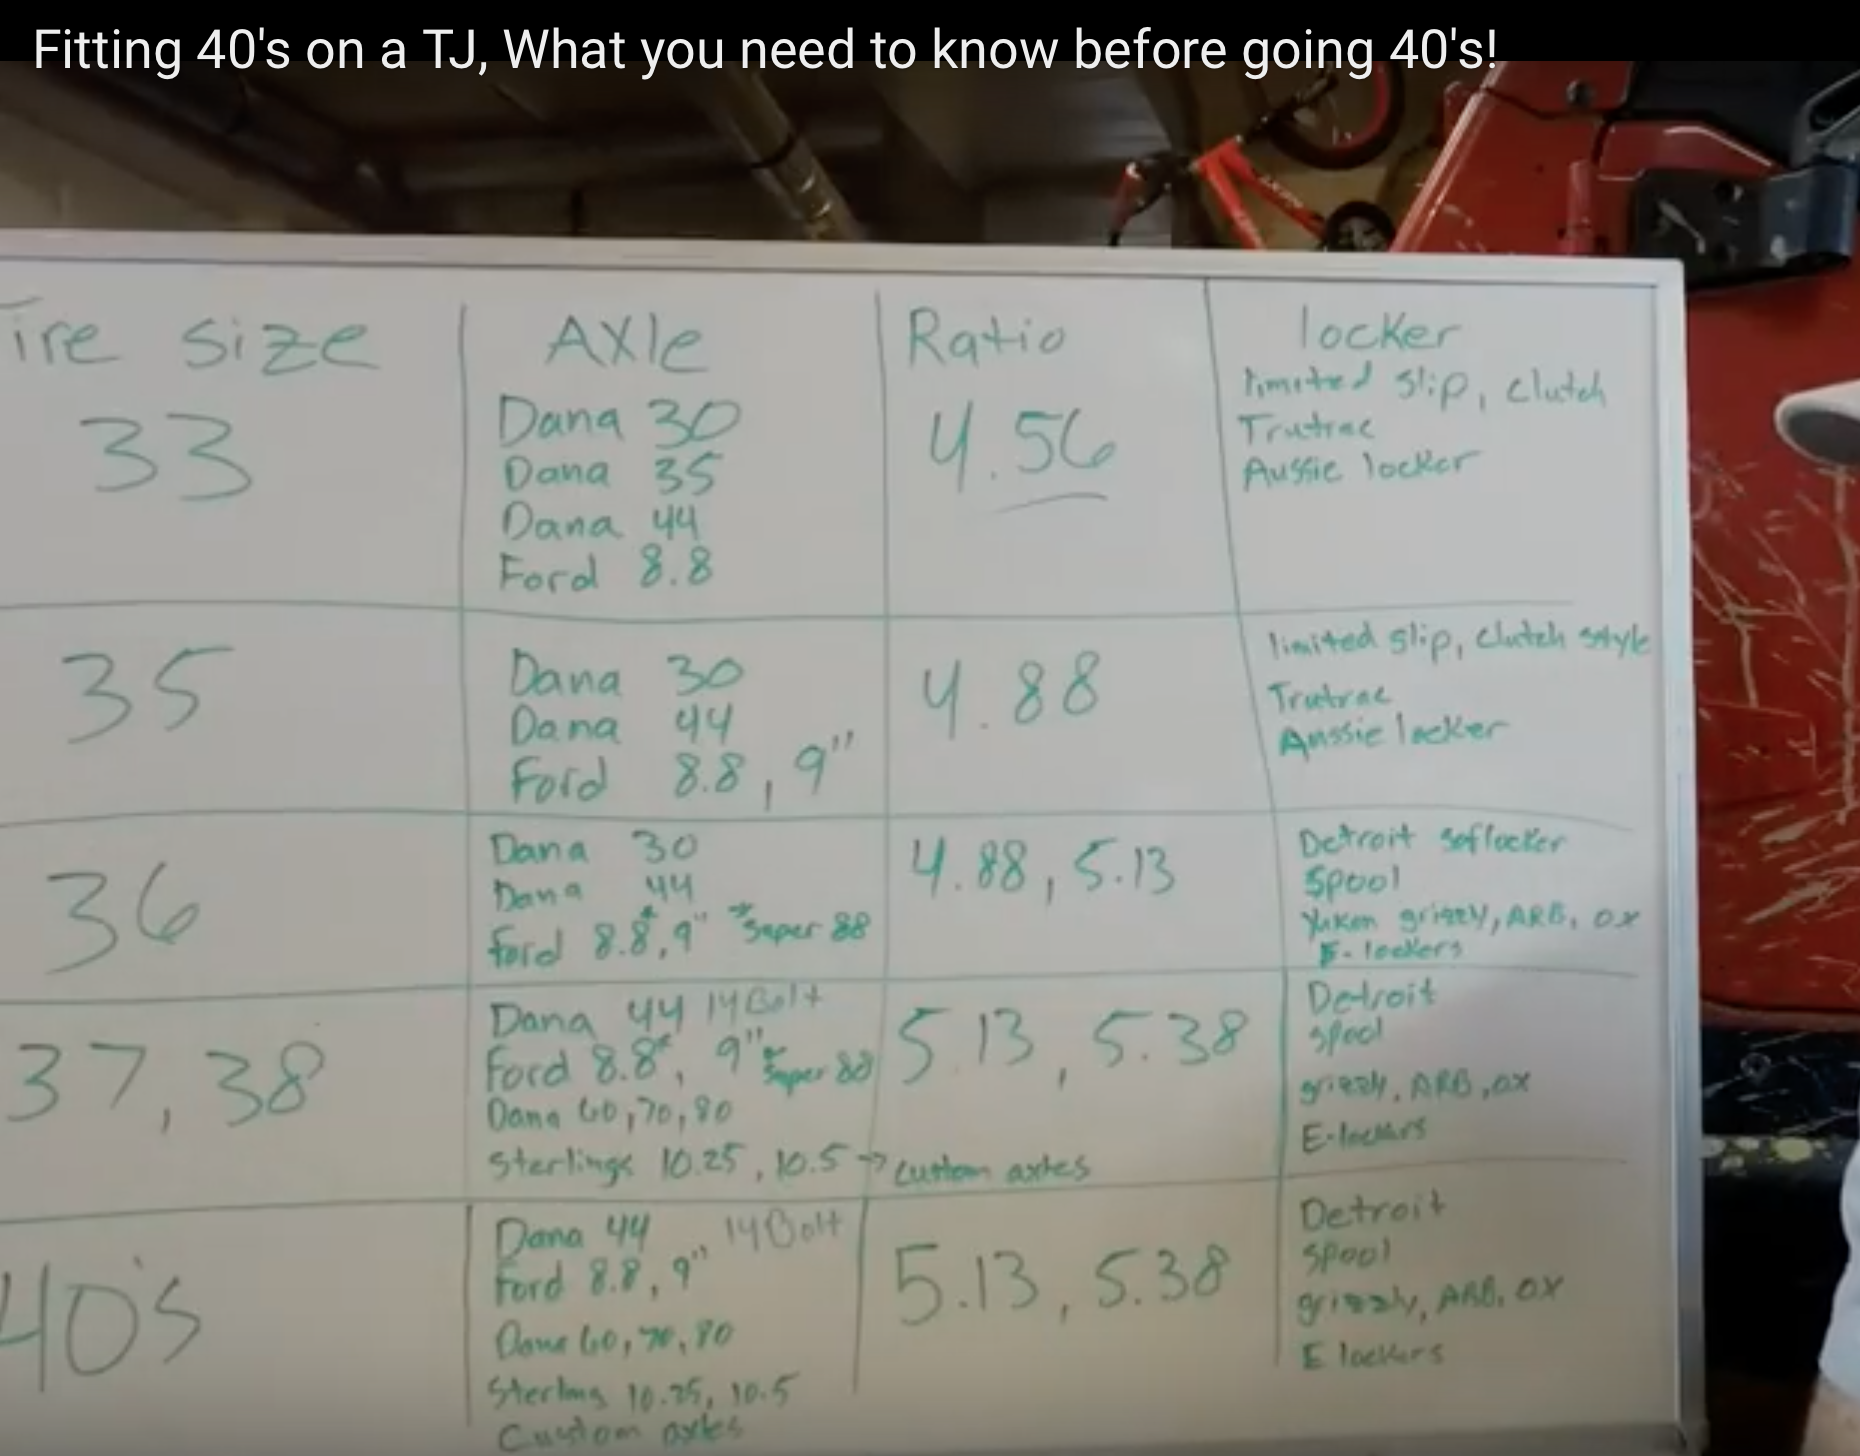 Fitting 40's on a TJ, What you need to know before going 40's!
ire size
AXle
Ratio
locker
33
Dana 30
Dana 35
Dana 44
Ford 8.8
4.56
limited slip, clutch
Trutrac
Aussie locker
35
Dana 30
Dana 44
Ford 8.8, 9"
4.88
limited slip, clutch sstyle
Trutrac
Aussie locker
36
Dana 30
Dana 44
Ford 8.8*, 9" *Super 88
4.88, 5.13
Detroit soflocker
Spool
Yukon grizzly, ARB, OX
E-lockers
37, 38
Dana 44 14Bolt
Ford 8.8*, 9" *Super 88
Dana 60, 70, 80
Sterlings 10.25, 10.5 → custom axles
5.13, 5.38
Detroit
spool
grizzly, ARB, OX
E-lockers
40's
Dana 44 14Bolt
Ford 8.8, 9"
Dana 60, 70, 80
Sterling 10.25, 10.5
Custom axles
5.13, 5.38
Detroit
spool
grizzly, ARB, OX
E lockers